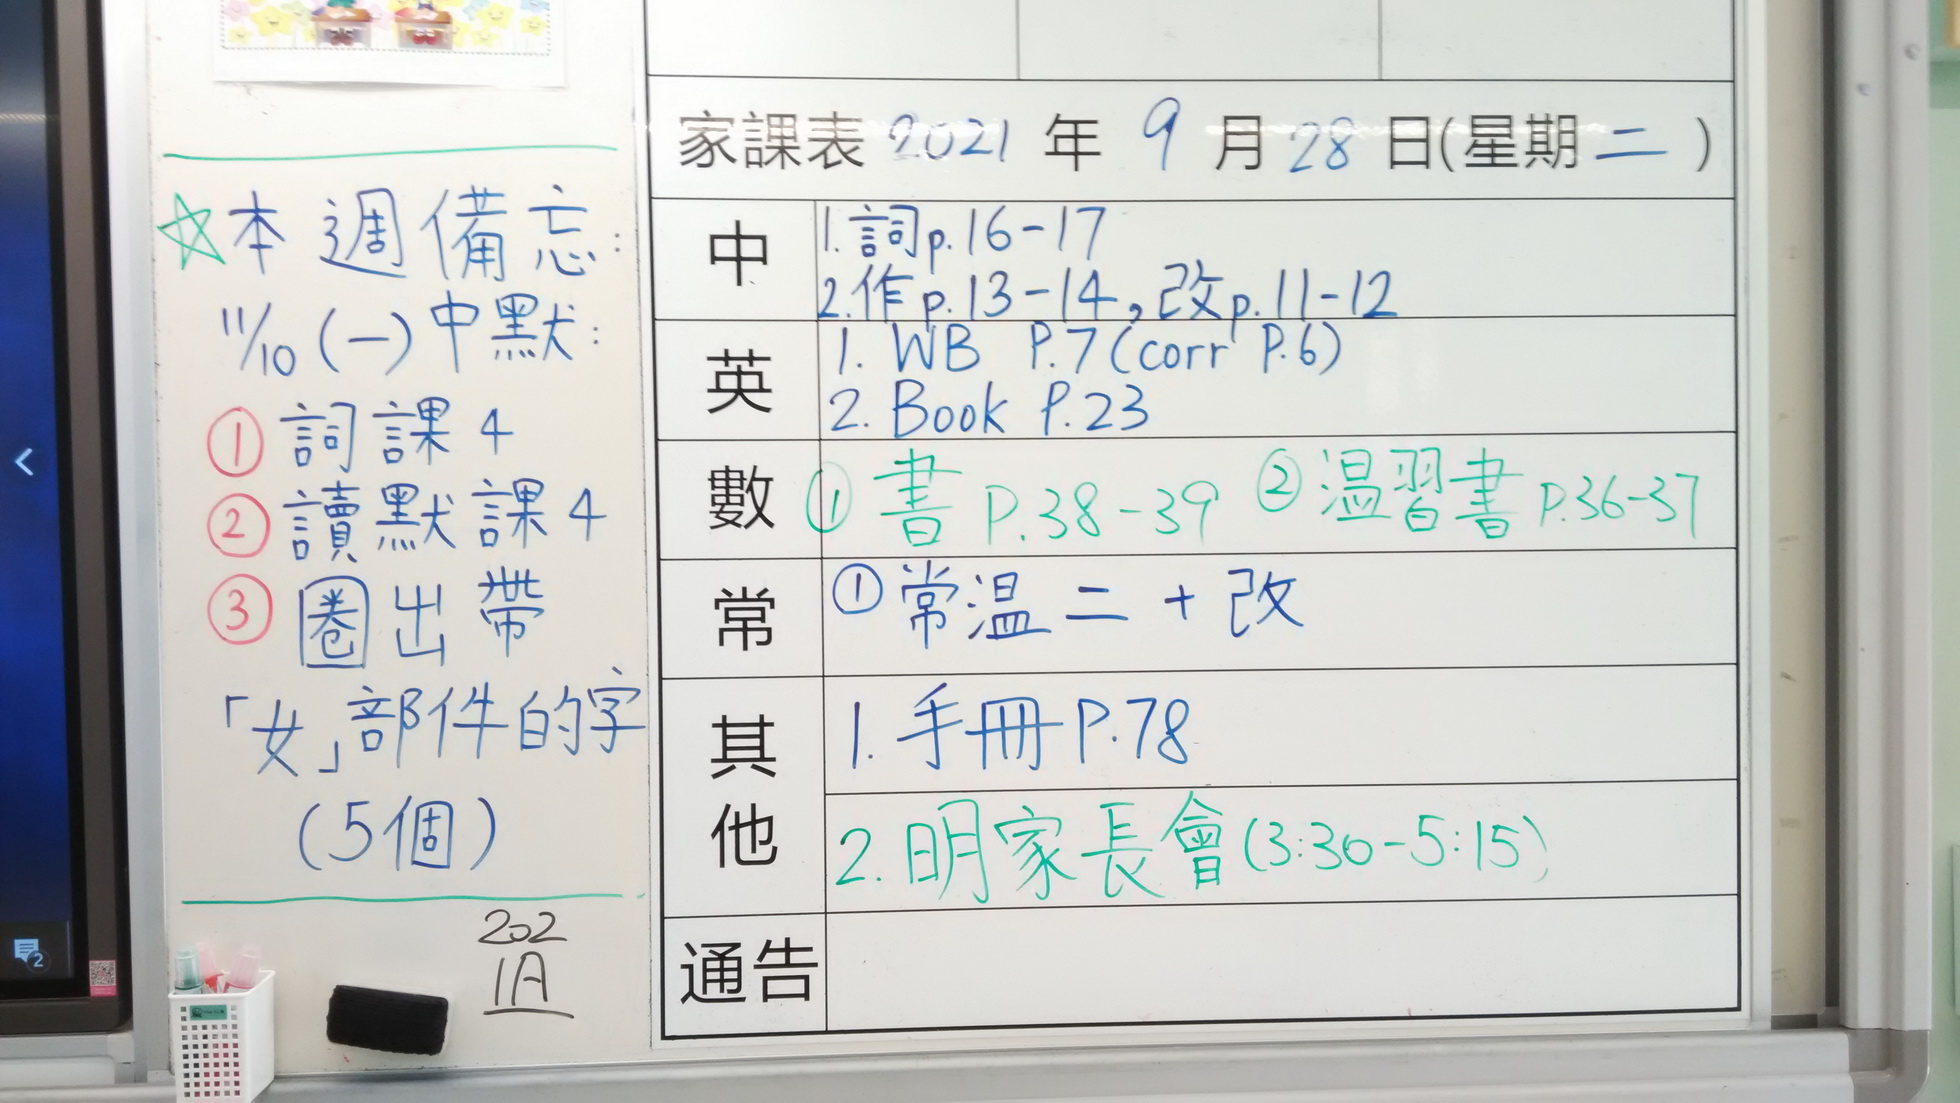 ☆本週備忘:
11/10(一)中默:
① 詞課4
② 讀默課4
③ 圈出帶
「女」部件的字
(5個)
202
1A
家課表 2021 年 9 月 28 日(星期二)
中
1. 詞p.16-17
2. 作p.13-14,改p.11-12
英
1. WB P.7(corr P.6)
2. Book P.23
數
① 書 P.38-39 ② 温習書 P.36-37
常
① 常温二+改
其他
1. 手冊P.78
2. 明家長會(3:30-5:15)
通告
2